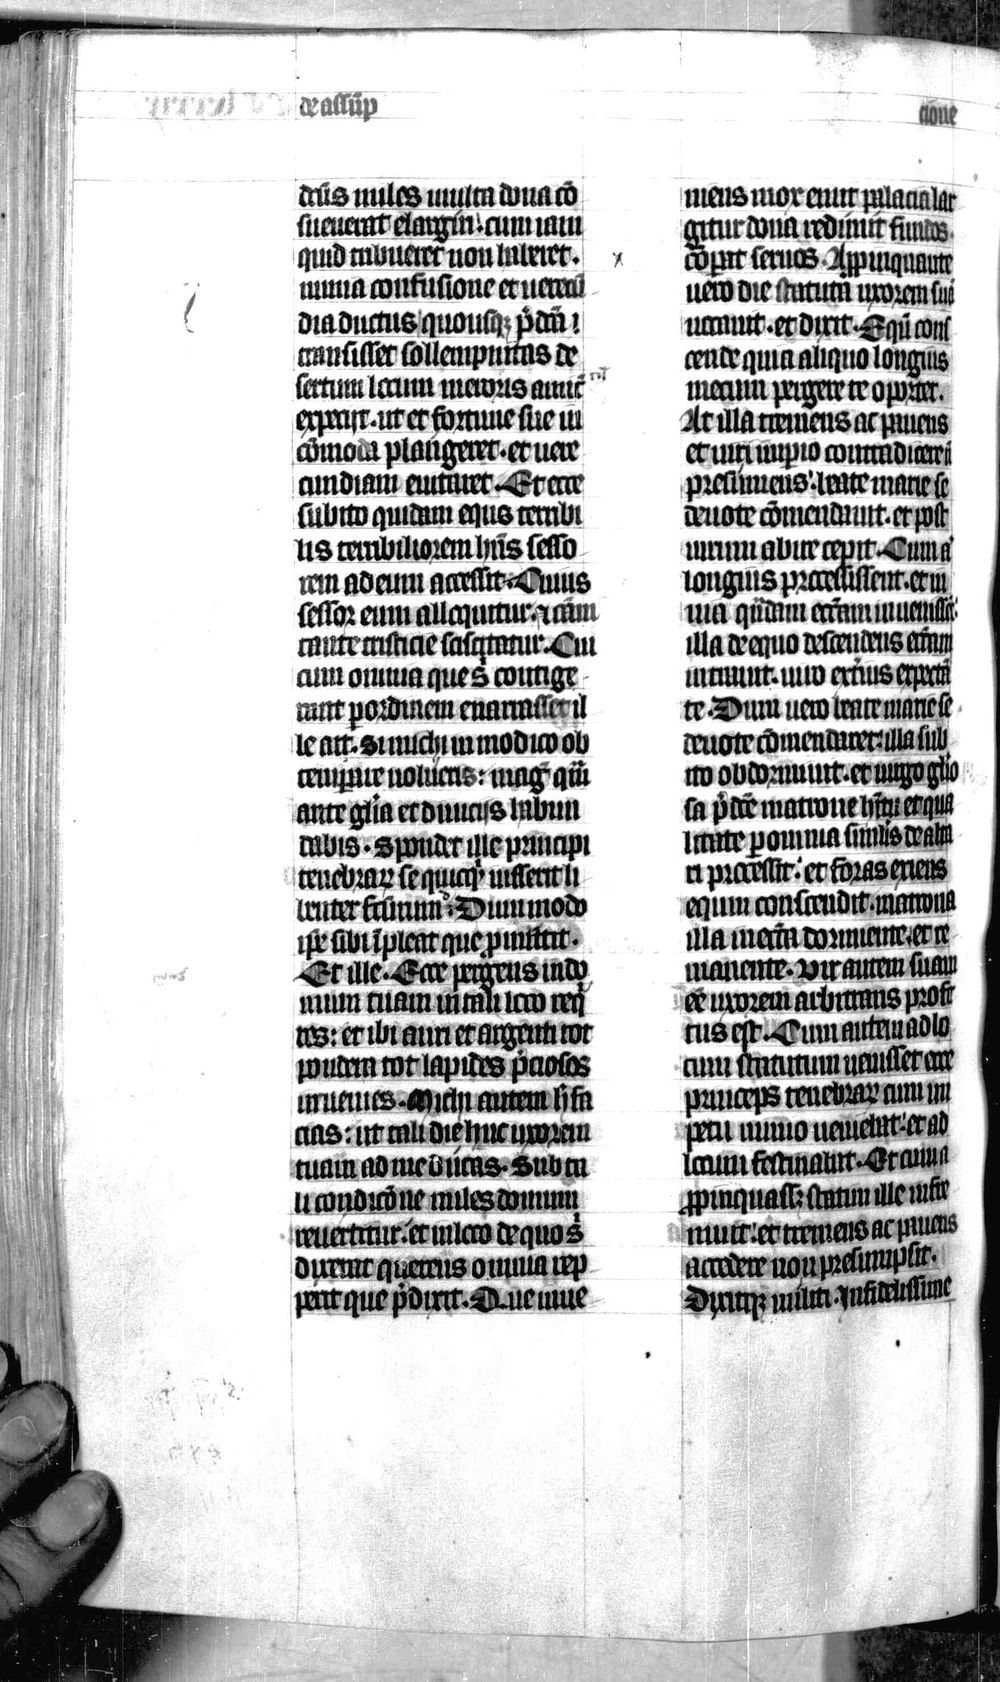 de assūp
cōne
dcūs miles multa dona cō
sueuerat elargiri. cum iam
quid tribueret non haberet.
nimia confusione et uerecū
dia ductus quousqꝫ p̄dc̄ā ī
transisset sollempnitas de
sertum locum meroris amic̄
expetijt. ut et fortune sue in
cōmoda plangeret. et uere
cundiam euitaret. Et ecce
subito quidam equs terribi
lis terribiliorem hn̄s sesso
rem ad eum accessit. Cuius
sessor eum alloquitur. ⁊ cām
tante tristicie sciscitatur. Cui
cum omnia que s̄ contige
rant ꝑ ordinem enarrasset il
le ait. Si michi in modico ob
temꝑare uolueris: maḡ qm̄
ante gl̄ia et diuicijs habun
dabis. Spondet ille principi
tenebraꝝ se quicqͥd iusserit li
benter fc̄urum: Dummodo
ip̄e sibi īpleat que ꝓmittit.
Et ille. Ecce pergens in do
mum tuam in tali loco req̄
res: et ibi auri et argenti tot
pondera tot lapides p̄ciosos
inuenies. Michi autem h̄ fa
cias: ut tali die huc uxorem
tuam ad me ducas. Sub ta
li condicōne miles domum
reuertitur. et in loco de quo s̄
dixerat querens omnia rep
perit que p̄dixit. Que inue
niens mox emit palacia lar
gitur dona redimit fundos.
cōparat seruos. Appinquante
uero die statuta uxorem suā
uocauit. et dixit. Equū cons
cende quia aliquo longius
mecum pergere te oportet.
At illa tremens ac pauens
et uiri imperio contradicere nō
presumens: beate marie se
deuote cōmendauit. et post
uirum abire cepit. Cum aͣ
longius processissent. et in
uia q̄dam ecc̄am inuenissēt:
illa de equo descendens ecc̄am
intrauit. uiro ext̄ius expectā
te. Dum uero beate marie se
deuote cōmendaret: illa sub
ito obdormiuit. et uirgo gl̄io
sa p̄dc̄e matrone h̄itu et qua
litate ꝑ omnia similis de alta
ri processit: et foras exiens
equum conscendit. matrona
illa in ecc̄a dormiente. et re
manente. Vir autem suam
eē uxorem arbitrans profec
tus est. Cum autem ad lo
cum statutum uenisset ecce
princeps tenebraꝝ cum im
petu nimio ueniebat: et ad
locum festinabat. Et cum a
ppinquassꝫ statim ille infre
muit: et tremens ac pauens
accedere non presumpsit.
Dixitqꝫ militi. Infidelissime